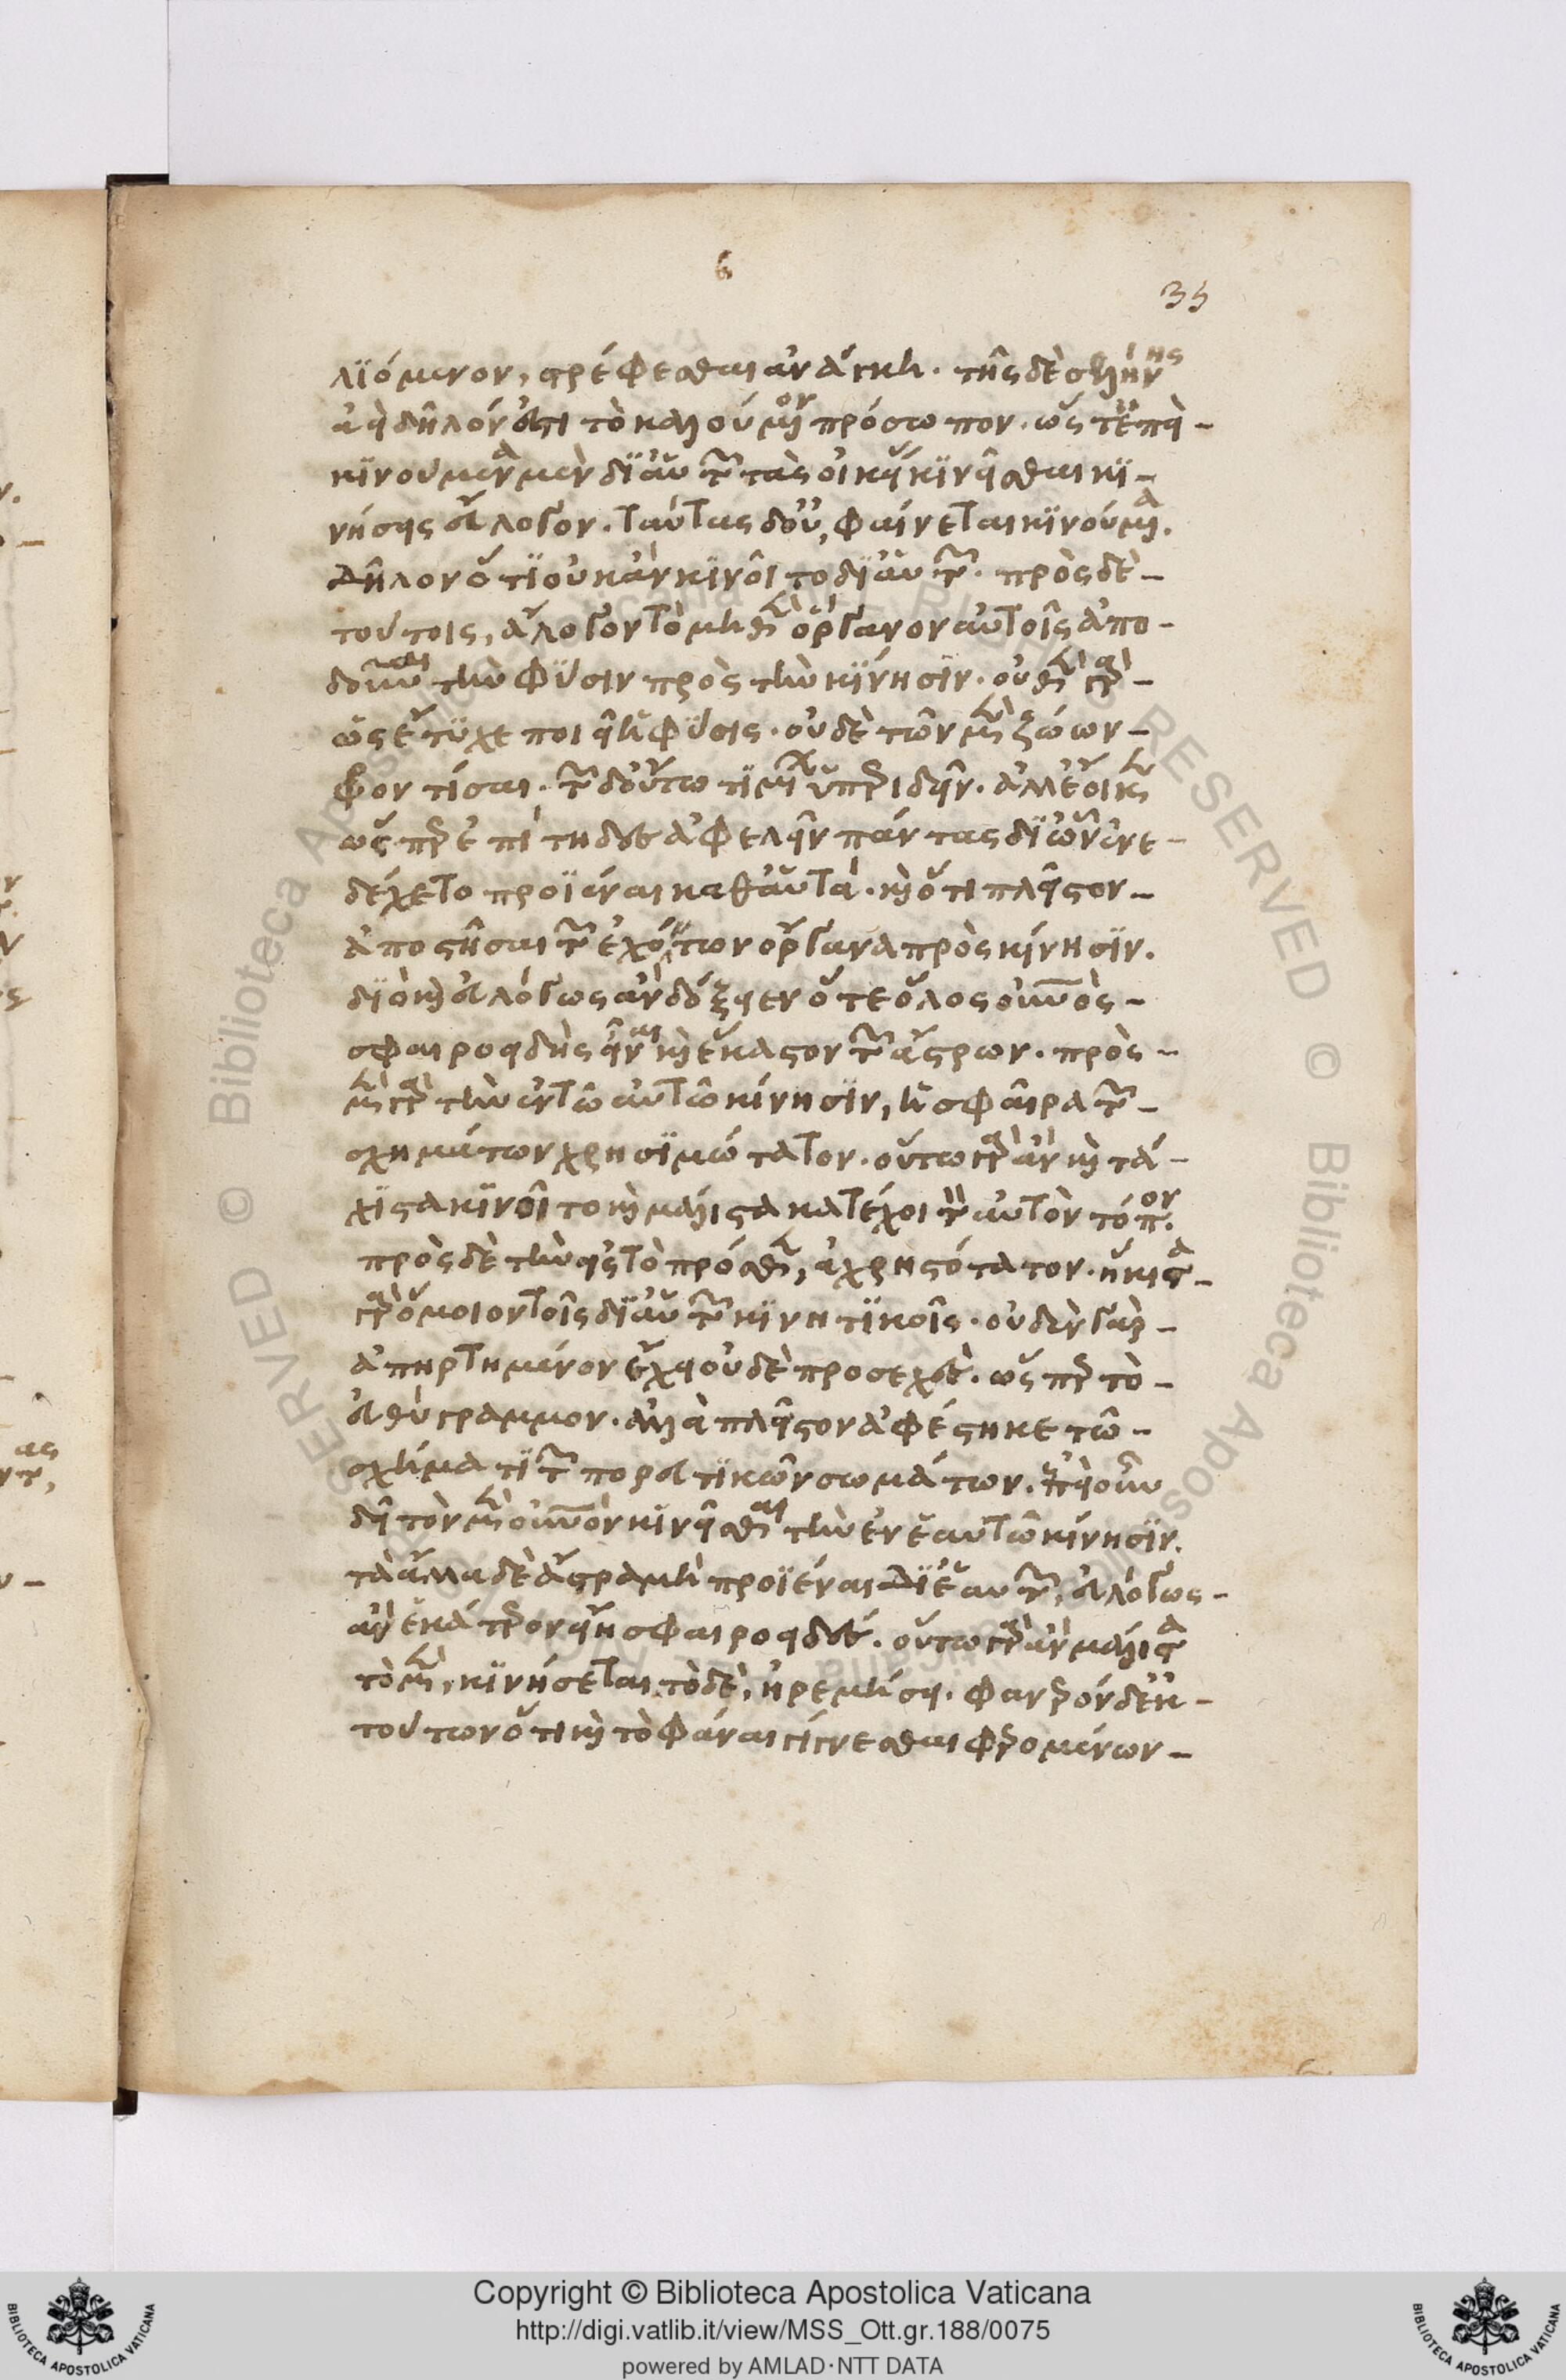 6
35
λϊόμενον, στρέφεσθαι ἀνάγκη. τῆς δὲ σελήνης
ἀεὶ δῆλόν ἐστι τὸ καλούμενον πρόσωπον. ὥστ' ἐπεὶ
κϊνούμενα μὲν δϊ' αὑτῶν τὰς οἰκείας κϊνεῖσθαι κϊ-
νήσεις εὔλογον. ταύτας δ' οὐ, φαίνεται κϊνούμενα.
δῆλον ὅτϊ οὐκ ἂν κϊνοῖτο δϊ' αὑτῶν. πρὸς δὲ
τούτοις, ἄλογον τὸ μηθὲν ὄργανον αὐτοῖς ἀπο-
δοῦναι τὴν φύσιν πρὸς τὴν κΐνησϊν. οὐθὲν γὰρ
ὡς ἔτϋχε ποιεῖ ἡ φύσις. οὐδὲ τῶν μὲν ζώων
φροντίσαι. τῶν δ' οὕτω τϊμίων ὑπεριδεῖν. ἀλλ' ἔοικεν
ὥσπερ ἐπίτηδες ἀφελεῖν πάντας δϊ' ὧν ἐνε-
δέχετο προϊέναι καθ' αὑτά. καὶ ὅτι πλεῖστον
ἀποστῆσαι τῶν ἐχόντων ὄργανα πρὸς κίνησϊν.
δϊὸ καὶ εὐλόγως ἂν δόξειεν ὅ τε ὅλος οὐρανὸς
σφαιροειδὴς εἶναι καὶ ἕκαστον τῶν ἄστρων. πρὸς
μὲν γὰρ τὴν ἐν τῶ αὐτῶ κίνησϊν, ἡ σφαῖρα τῶν
σχημάτων χρησϊμώτατον. οὕτω γὰρ ἂν καὶ τά-
χϊστα κϊνοῖτο καὶ μάλιστα κατέχοι τὸν αὐτὸν τόπον.
πρὸς δὲ τὴν εἰς τὸ πρόσθεν, ἀχρηστότατον. ἥκιστα
γὰρ ὅμοιον τοῖς δϊ' αὑτῶν κϊνητϊκοῖς. οὐδὲν γὰρ
ἀπηρτημένον ἔχει οὐδὲ προσεχὲς. ὥσπερ τὸ
εὐθύγραμμον. ἀλλὰ πλεῖστον ἀφέστηκε τῶ
σχήματϊ τῶν πορευτϊκῶν σωμάτων. ἐπεὶ οὖν
δεῖ τὸν μὲν οὐρανὸν κινεῖσθαι τὴν ἐν ἑαυτῶ κίνησϊν.
τὰ ἄλλα δὲ ἄστρα μὴ προϊέναι δϊ' ἑαυτῶν, εὐλόγως
ἂν ἑκάτερον εἴη σφαιροειδές. οὕτω γὰρ ἂν μάλιστα
τὸ μὲν, κϊνήσεται, τὸ δὲ, ἠρεμήσει. φανερὸν δ' ἐκ
τούτων ὅτι καὶ τὸ φάναι γίγνεσθαι φερομένων
Copyright © Biblioteca Apostolica Vaticana
http://digi.vatlib.it/view/MSS_Ott.gr.188/0075
powered by AMLAD·NTT DATA